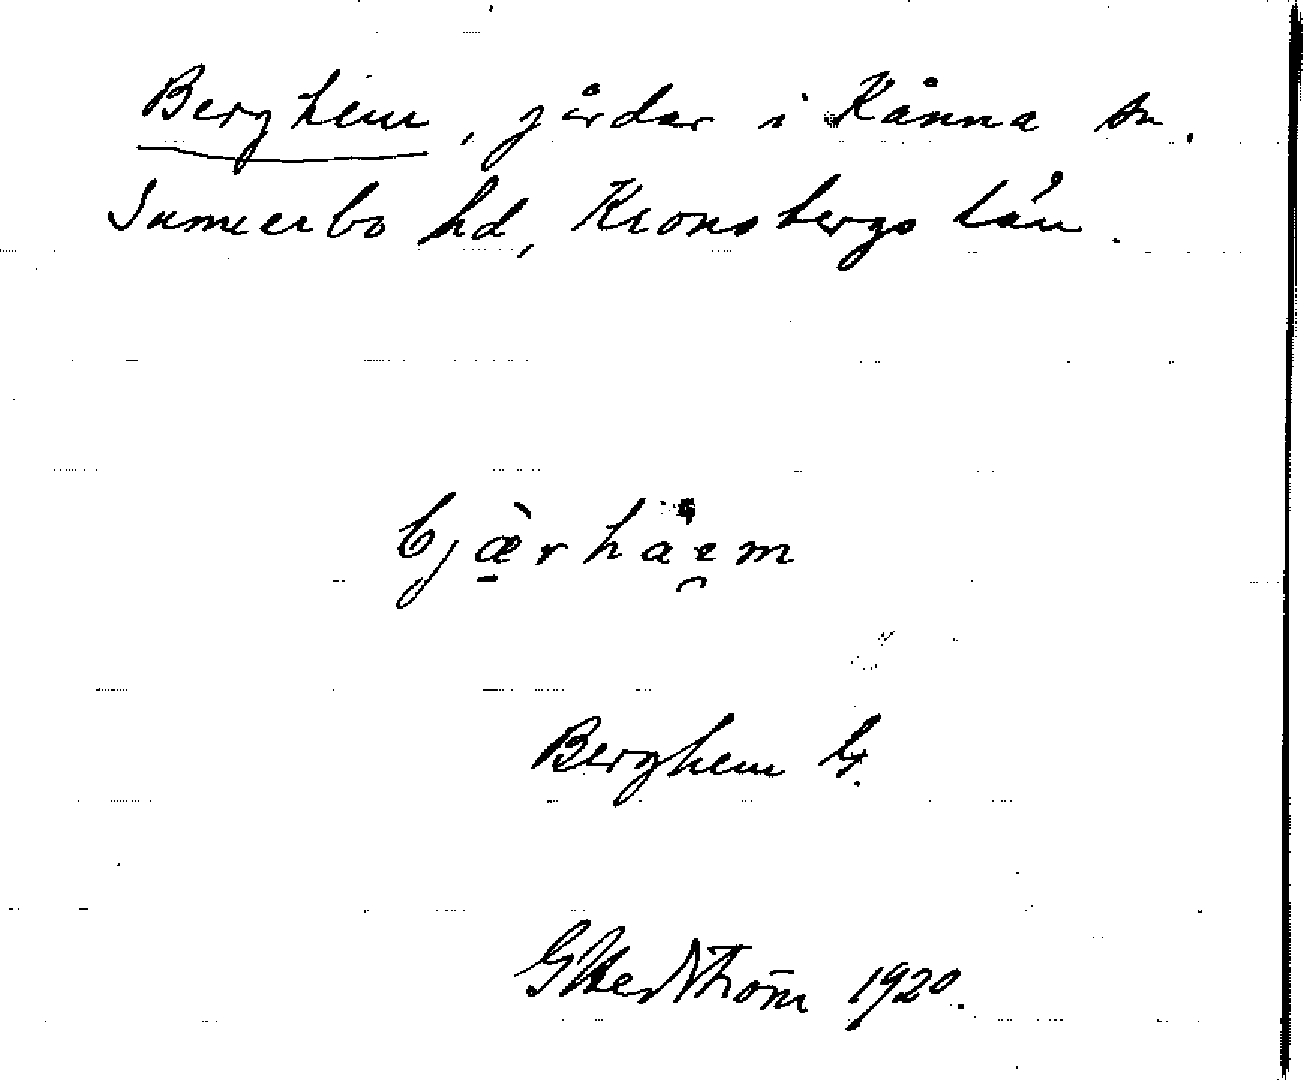 Berghem, gårdar i Kånna sn.
Sunnerbo hd, Kronobergs län.
bjæ̠̀rhäe̯m
Berghem G.
1920.